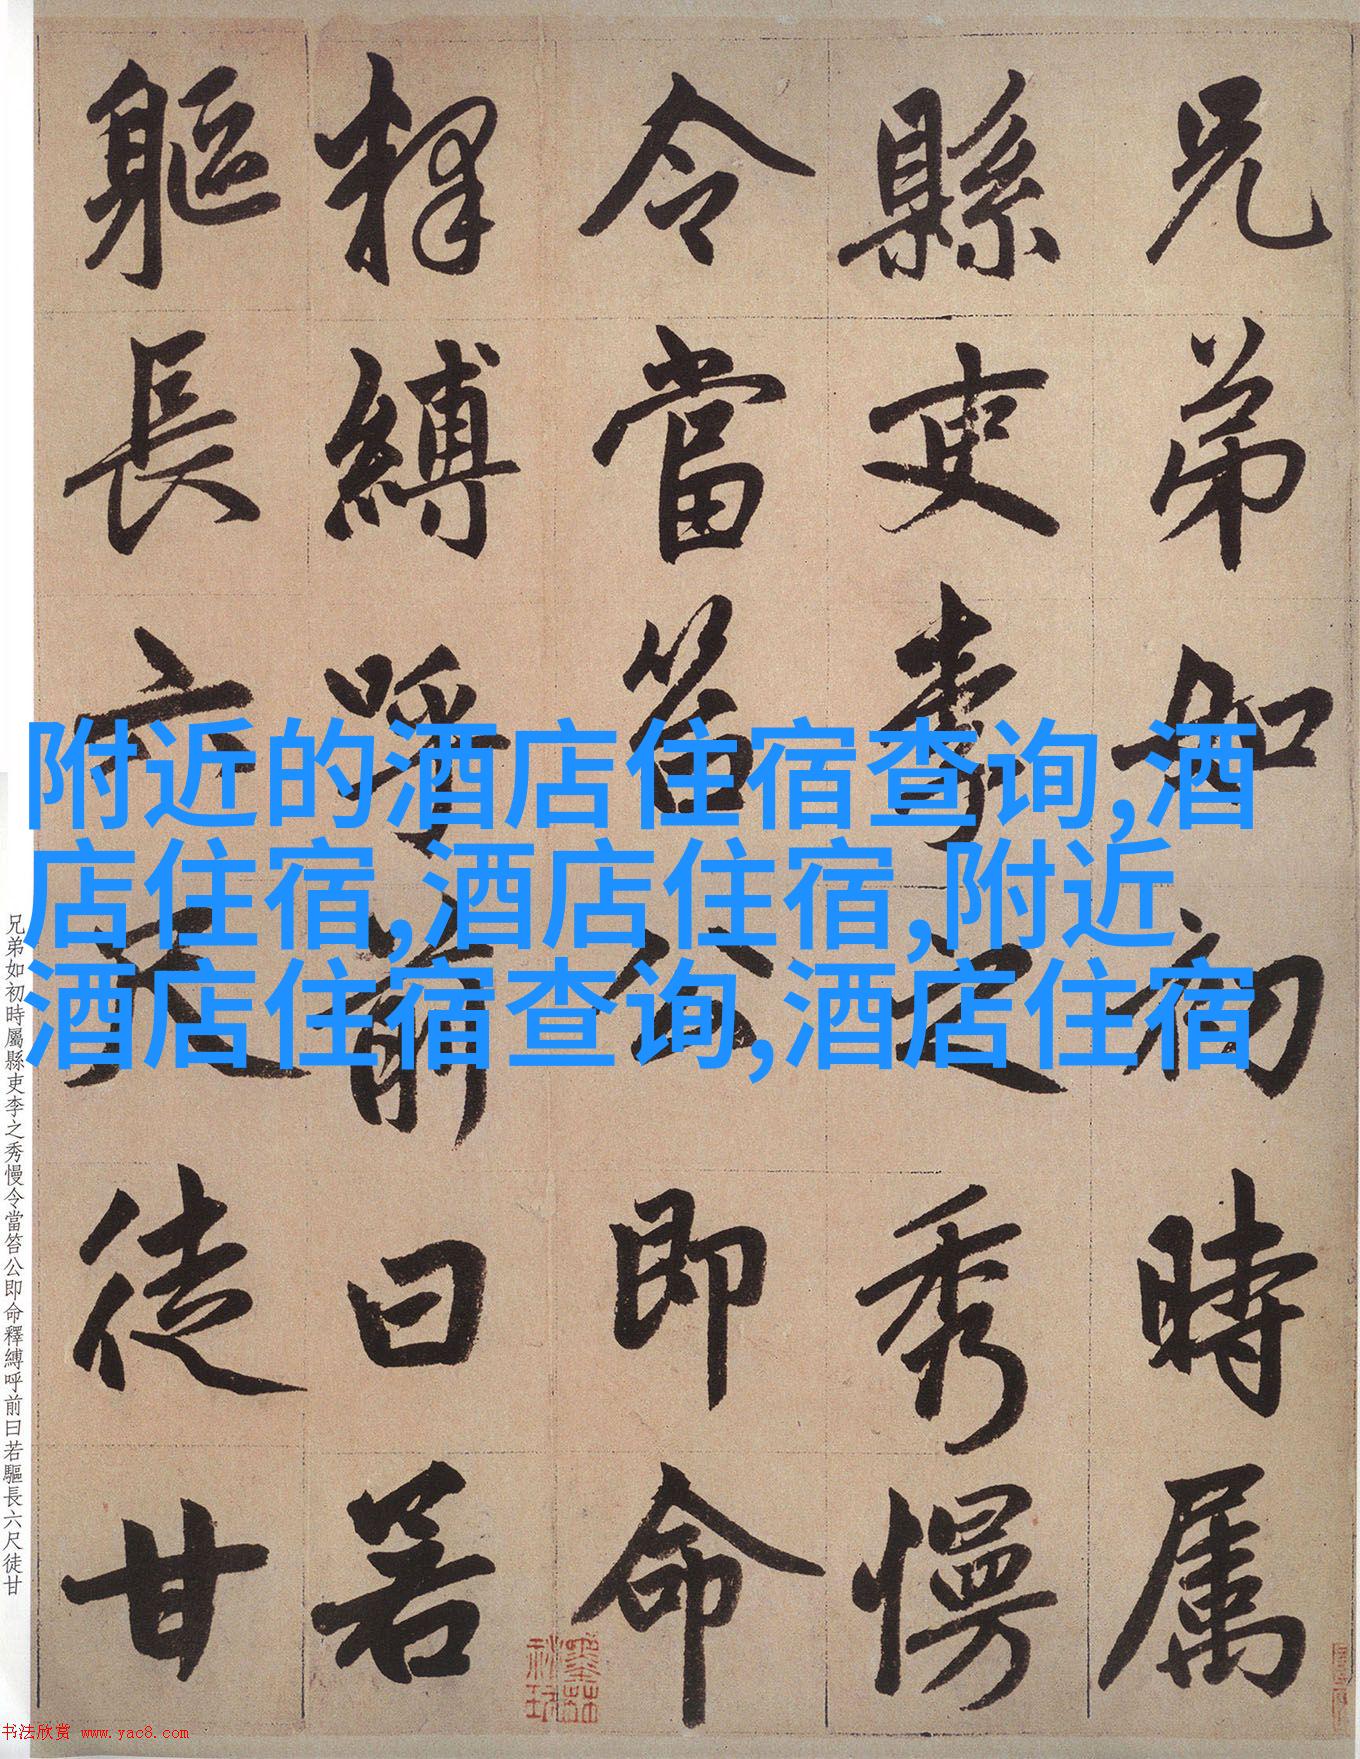 兄弟如初時属
縣吏李之秀慢
令當笞公即命
釋縛呼前曰若
軀長六尺徒甘
附近的酒店住宿查询,酒
店住宿,酒店住宿,附近
酒店住宿查询,酒店住宿
兄弟如初時屬縣吏李之秀慢令當笞公即命釋縛呼前曰若驅長六尺徒甘
书法欣赏 www.yac8.com